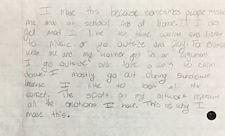 I make this because sometimes people make
me mad at school and at home. If I do
get mad I like to take time and listen
to music or go outside and play. For example
when me and my mother get in an argument
I go outside and take a walk to calm
down. I mostly go out during sundown
because I like to look at the
sunset. The spots on my artwork represent
all the emotions I have. This is why I
made this.